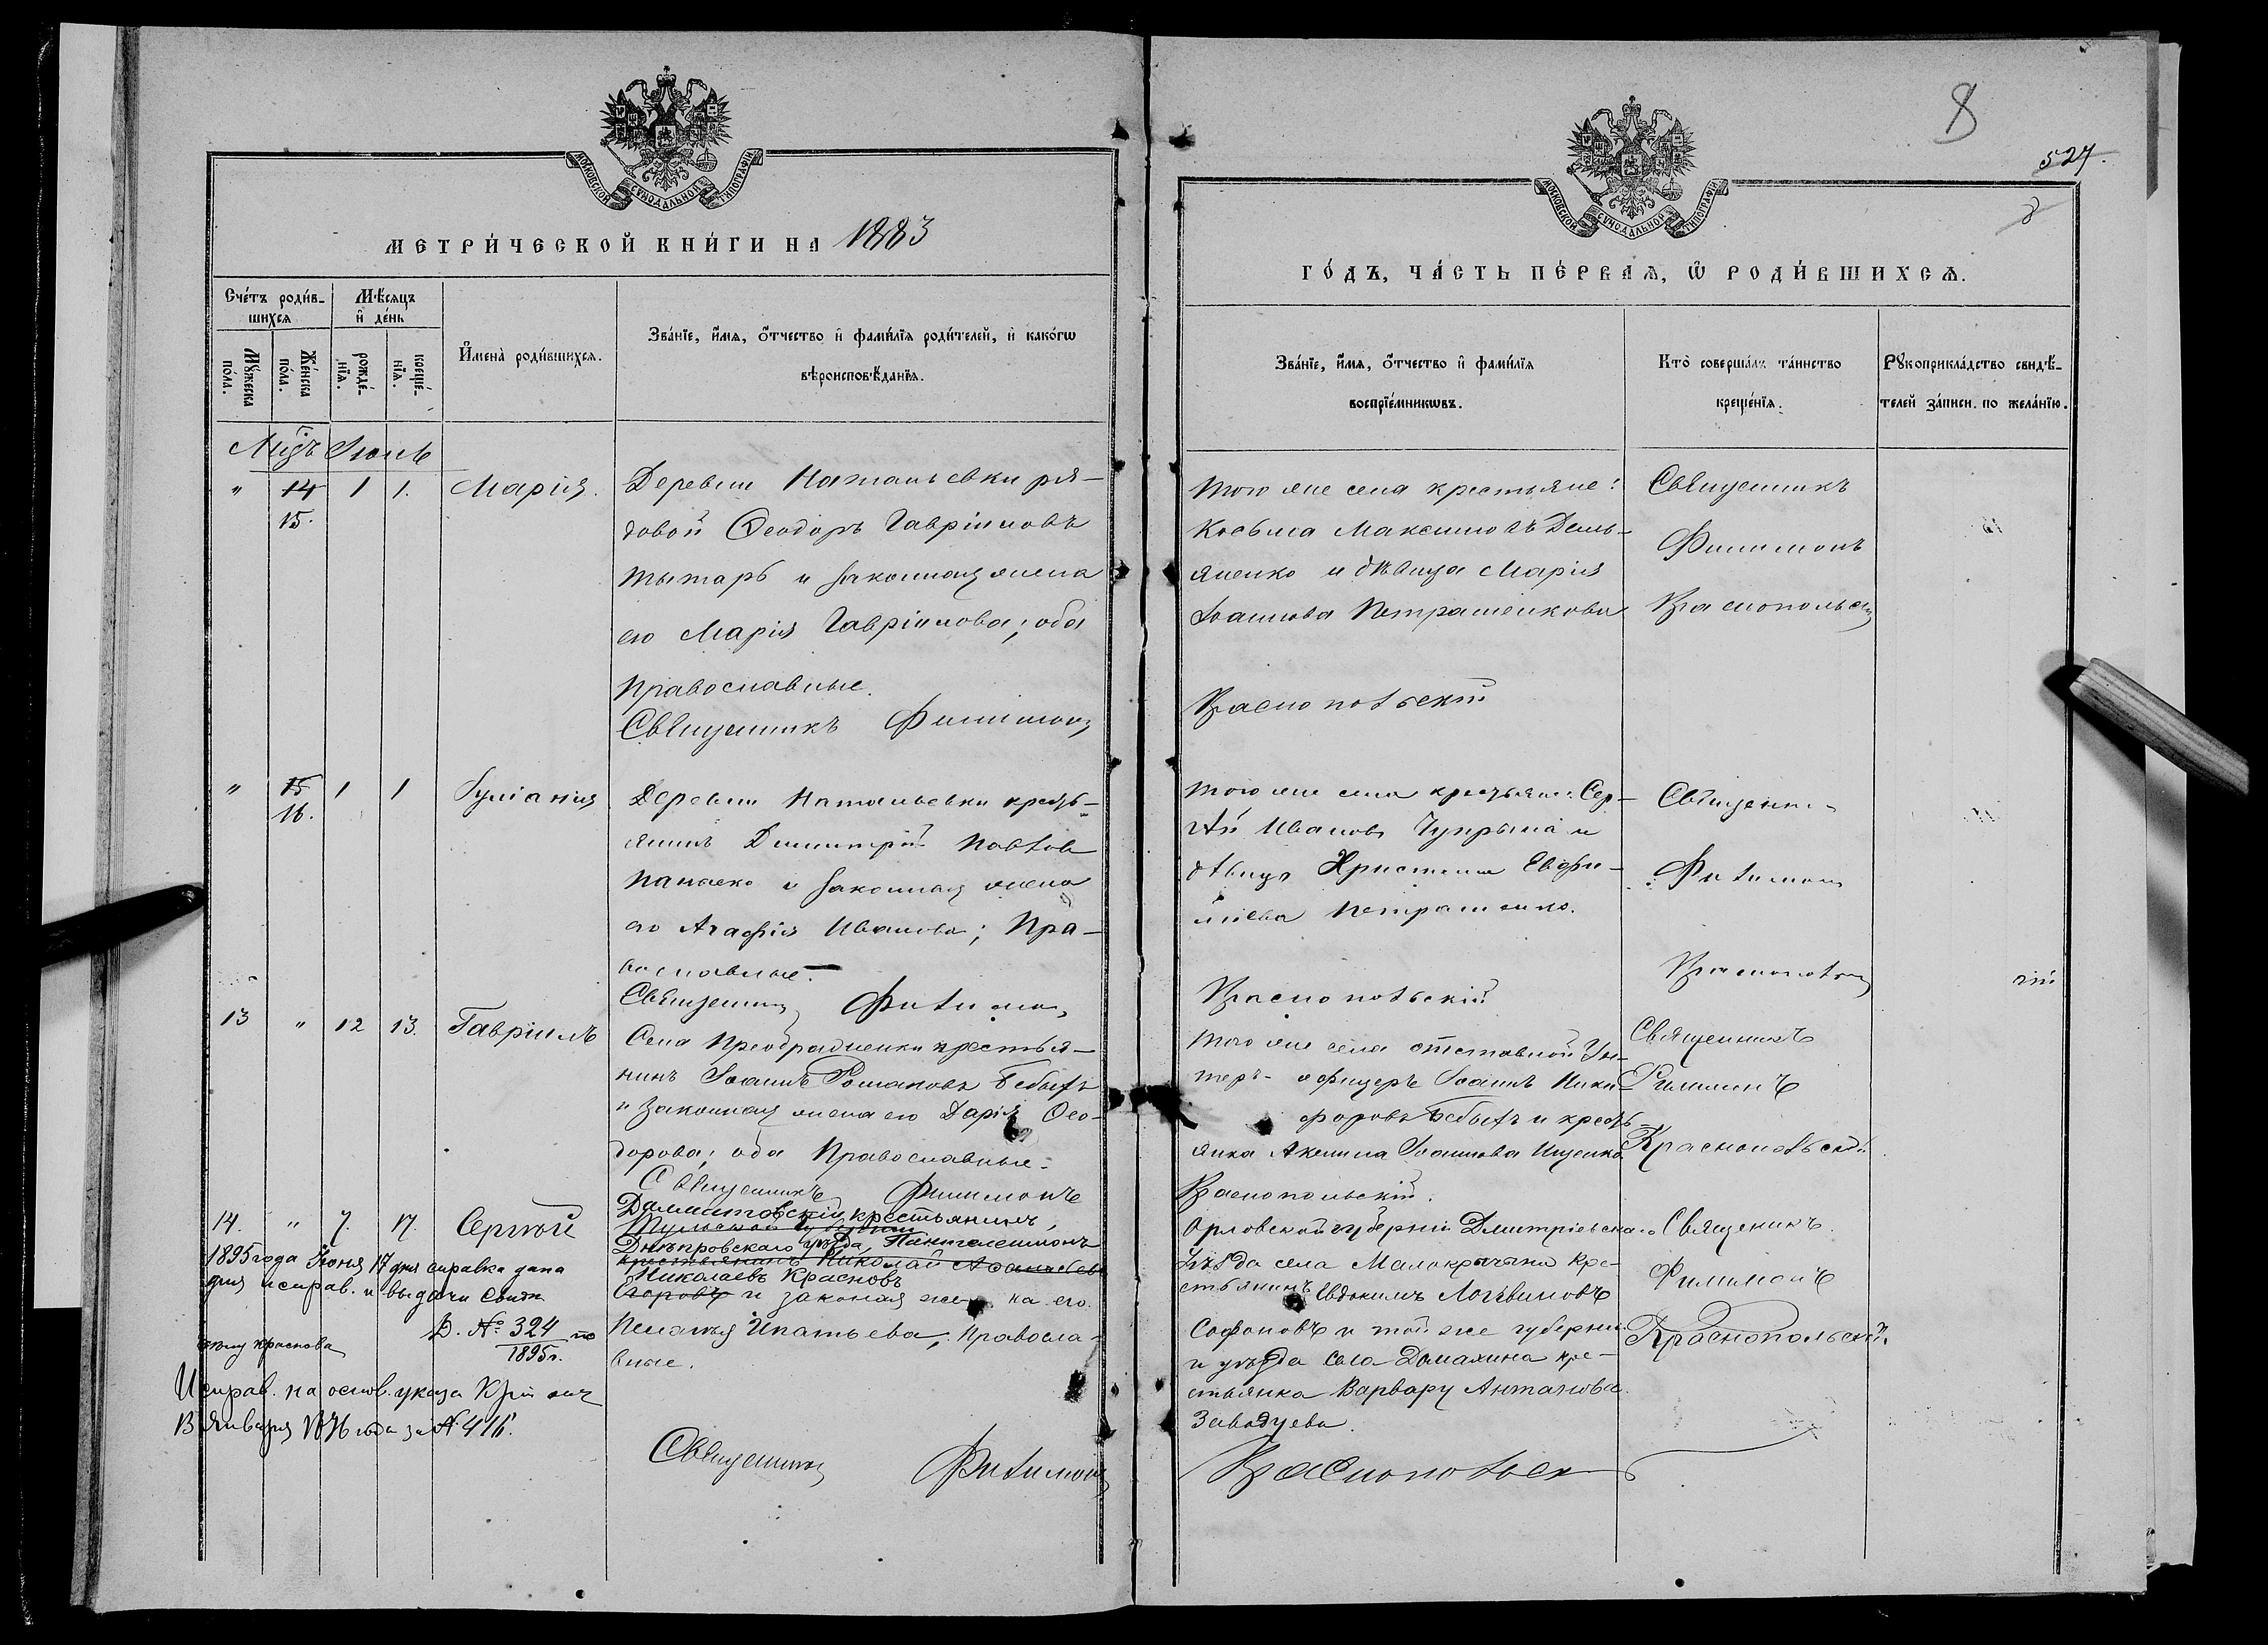 МОСКОВСКОЙ СѴНОДАЛЬНОЙ ТИПОГРАФІИ
МЕТРИ́ЧЕСКОЙ КНИ́ГИ НА 1883
Сче́тъ роди́в-
шихсѧ
Мѣ́сѧцъ
и҆ де́нь
Мꙋ́жеска
по́ла.
Же́нска
по́ла.
рожде́-
нїѧ.
креще́-
нїѧ.
И҆мена̀ роди́вшихсѧ.
Зва́нїе, и҆́мѧ, ѻ҆́тчество и҆ фами́лїѧ роди́телей, и҆ како́гѡ
вѣроисповѣ́данїѧ.
Мцъ Іюль
" 14 1 1. Марія.
15.
Деревни Натальевки ря-
довой Ѳеодоръ Гавріиловъ
Тытарь и законная жена
его Марія Гавріилова; оба
Православные.
Священникъ Филимонъ
" 15 1 1 Іуліанія
16.
Деревни Натальевки кресть-
янинъ Димитрій Павловъ
и законная жена
его Агафія Иванова; Пра-
вославные.
Священникъ Филимонъ
13 " 12 13. Гавріилъ
Села Преображенки крестья-
нинъ Іоаннъ Романовъ Бебыхъ
и законная жена его Дарія Ѳео-
дорова; оба Православные.
Священникъ Филимонъ
14. " 7. 17. Сергій
крестьянинъ,
Тульской губерніи
Днѣпровскаго уѣзда Пантелеимонъ
крестьянинъ Николай Аѳанасьевъ
Николаевъ Красновъ
Егоровъ и законая жена его
Пелагія Ипатьева, Правосла-
вные.
1895 года Іюня 17 дня справка дана
для исправ. и выдачи Свид.
Краснова
Д. № 324 по
1895 г.
Исправ. на основ. указа
Января года за № 416.
Священникъ Филимонъ
8
527.
МОСКОВСКОЙ СѴНОДАЛЬНОЙ ТИПОГРАФІИ
ГО́ДЪ, ЧА́СТЬ ПЕ́РВАѦ, Ѡ҆ РОДИ́ВШИХСѦ.
Зва́нїе, и҆́мѧ, ѻ҆́тчество и҆ фами́лїѧ
воспрїе́мникѡвъ.
Кто̀ соверша́лъ та́инство
креще́нїѧ.
Рꙋкоприкла́дство свидѣ́-
телей за́писи по жела́нїю.
того же села крестьяне:
Косьма Максимовъ Демь-
яненко и дѣвица Марія
Іоаннова Петрашенкова
Краснопольскій
Священникъ
Филимонъ
Краснопольскій
того же села крестьяне: Сер-
гѣй Ивановъ Чупрына и
дѣвица Христина Евфи-
міева Петрашенко.
Краснопольскій
Священникъ
Филимонъ
Краснопольскій
того же села отставной Ун-
теръ-офицеръ Іоаннъ Ники-
форовъ Бебыхъ и кресть-
янка Акилина Іоаннова Ищенко
Краснопольскій.
Священникъ
Филимонъ
Краснопольскій
Орловской губерніи Дмитріевскаго
уѣзда села Малокрачина кре-
стьянинъ Евдокимъ Логвиновъ
Софоновъ и той же губерніи
и уѣзда села Домахина кре-
стьянка Варвару Антанова
Завадуева.
Краснопольскій
Священикъ
Филимонъ
Краснопольскій.